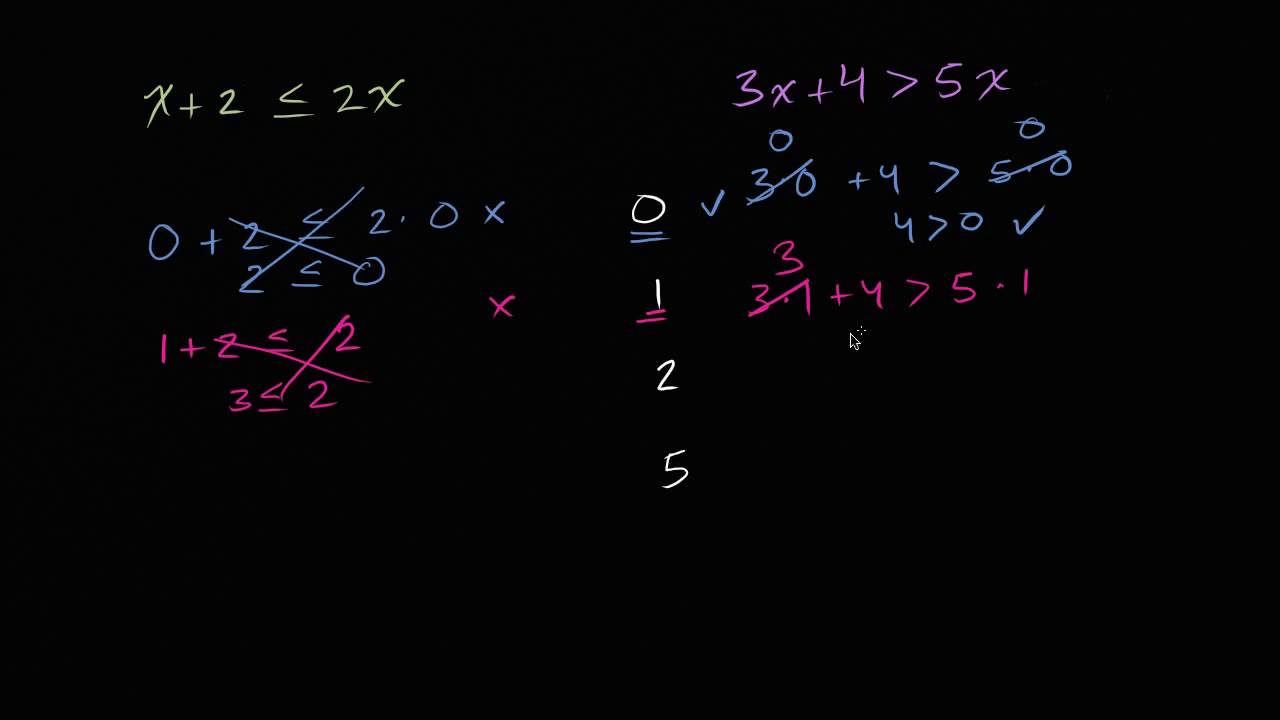 x+2 ≤ 2x
0 + 2 ≤ 2·0 x
2 ≤ 0
x
1+2 ≤ 2
3 ≤ 2
0
1
2
5
3x+4 > 5x
0 0
✓ 3·0 +4 > 5·0
4>0 ✓
3
3·1 +4 > 5·1